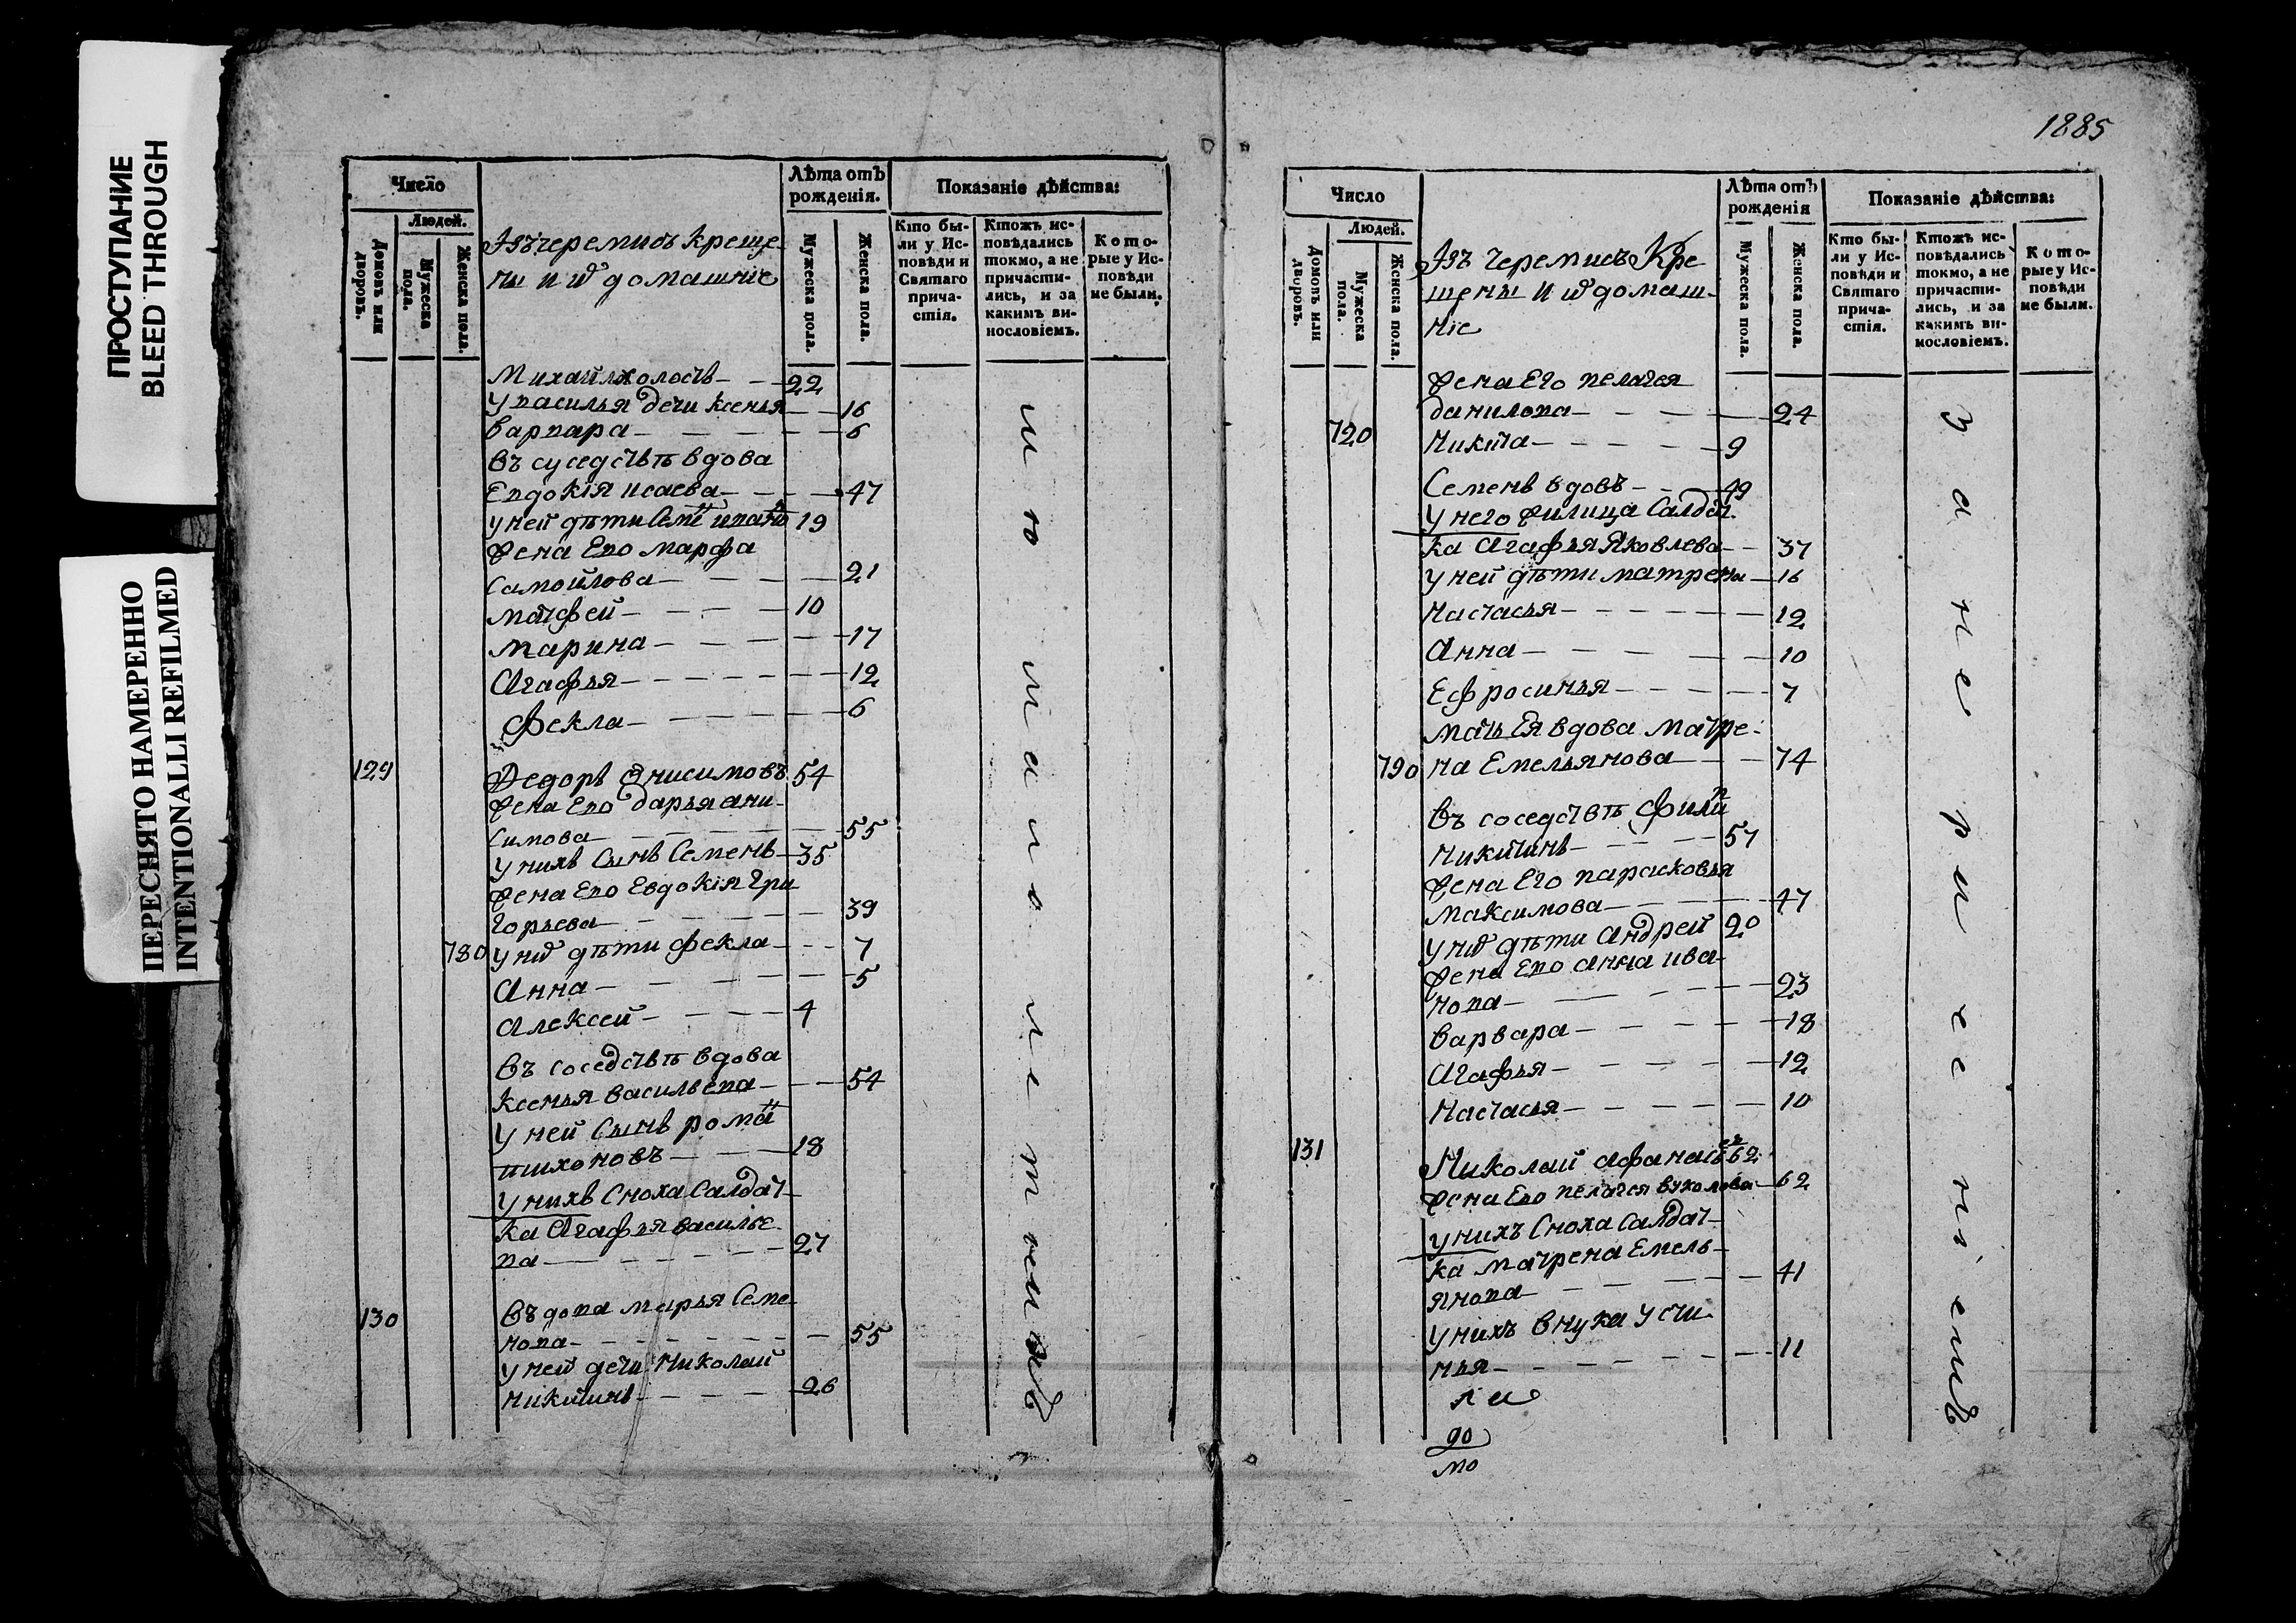 ПРОСТУПАНИЕ
BLEED THROUGH
ПЕРЕСНЯТО НАМЕРЕННО
INTENTIONALLI REFILMED
Число
Людей.
Домовъ или дворовъ.
Мужеска пола.
Женска пола.
Изъ черемисъ креще
ны и их домашніе
Лѣта отъ рожденія.
Мужеска пола.
Женска пола.
Показаніе дѣйства:
Кто бы-
ли у Ис-
повѣди и
Святаго
прича-
стія.
Ктожъ ис-
повѣдались
токмо, а не
причасти-
лись, и за
какимъ ви-
нословіемъ.
Кото-
рые у Ис-
повѣди
не были.
Михайла холостъ - - 22
У василья дети ксенья - - 16
варвара - - - 6
въ суседствѣ вдова
Евдокія исаева - - - 47
у ней дѣти Семен иванов 19
жена Ево марфа
самойлова - - - 21
матфей - - - 10
марина - - - 17
Агафья - - - 12
Фекла - - - 6
129 Федоръ Анисимовъ 54
жена Ево дарья ани-
симова - - - 55
у нихъ Сынъ Семенъ - 35
жена Ево Евдокія Гри
горьева - - - 39
780 у них дѣти фекла - - - 7
Анна - - - 5
Алексей - - - 4
въ соседствѣ вдова
Ксенья васильева - - - 54
У ней Сынъ роман
тихоновъ - - - 18
У нихъ Сноха Салдат-
ка Агафья василье
ва - - - 27
130 въдова марья Семе
нова - - - 55
У ней дети Николай
Никитинъ - - - 26
малолетствомъ
1885
Число
Людей.
Домовъ или дворовъ.
Мужеска пола.
Женска пола.
Изъ черемисъ Кре
щены и их домаш-
ніе
Лѣта отъ рожденія
Мужеска пола.
Женска пола.
Показаніе дѣйства:
Кто бы-
ли у Ис-
повѣди и
Святаго
прича-
стія.
Ктожъ ис-
повѣдались
токмо, а не
причасти-
лись, и за
какимъ ви-
нословіемъ.
Кото-
рые у Ис-
повѣди
не были.
жена Его пелагея
данилова - - - 24
720 Никита - - - 9
Семенъ вдовъ - - 49
У него Салдат
ка Агафья Яковлева - - 37
у ней дѣти матрена - 16
Настасья - - - 12
Анна - - - 10
Ефросинья - - - 7
мать Ея вдова матре-
790 на Емельянова - - - 74
въ соседствѣ Филип
Никитинъ - - - 57
жена Его парасковья
Максимова - - - 47
у них дѣти Андрей 20
жена Ево анна ива-
нова - - - 23
варвара - - - 18
Агафья - - - 12
Настасья - - - 10
131 Николай афанасьев 62
жена Ево пелагея вуколова - 62
у нихъ Сноха Салдат-
ка матрена Емель-
янова - - - 41
У нихъ внука Усти
нья - - - 11
до
мо